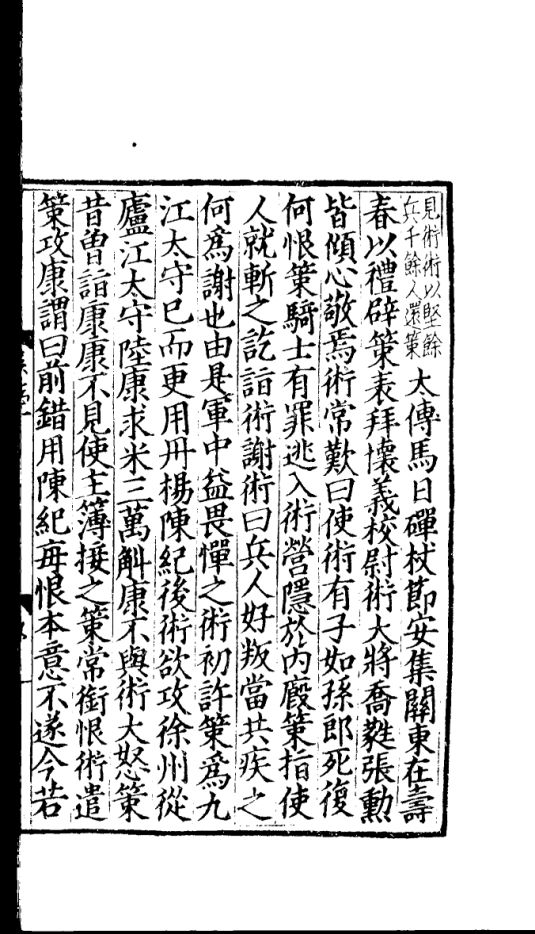 見術術以堅餘
兵千餘人還策
太傅馬日磾杖節安集關東在壽
春以禮辟策表拜懷義校尉術大將喬蕤張勳
皆傾心敬焉術常歎曰使術有子如孫郎死復
何恨策騎士有罪逃入術營隱於内廄策指使
人就斬之訖詣術謝術曰兵人好叛當共疾之
何爲謝也由是軍中益畏憚之術初許策爲九
江太守已而更用丹楊陳紀後術欲攻徐州從
廬江太守陸康求米三萬斛康不與術大怒策
昔曽詣康康不見使主簿接之策常銜恨術遣
策攻康謂曰前錯用陳紀每恨本意不遂今若